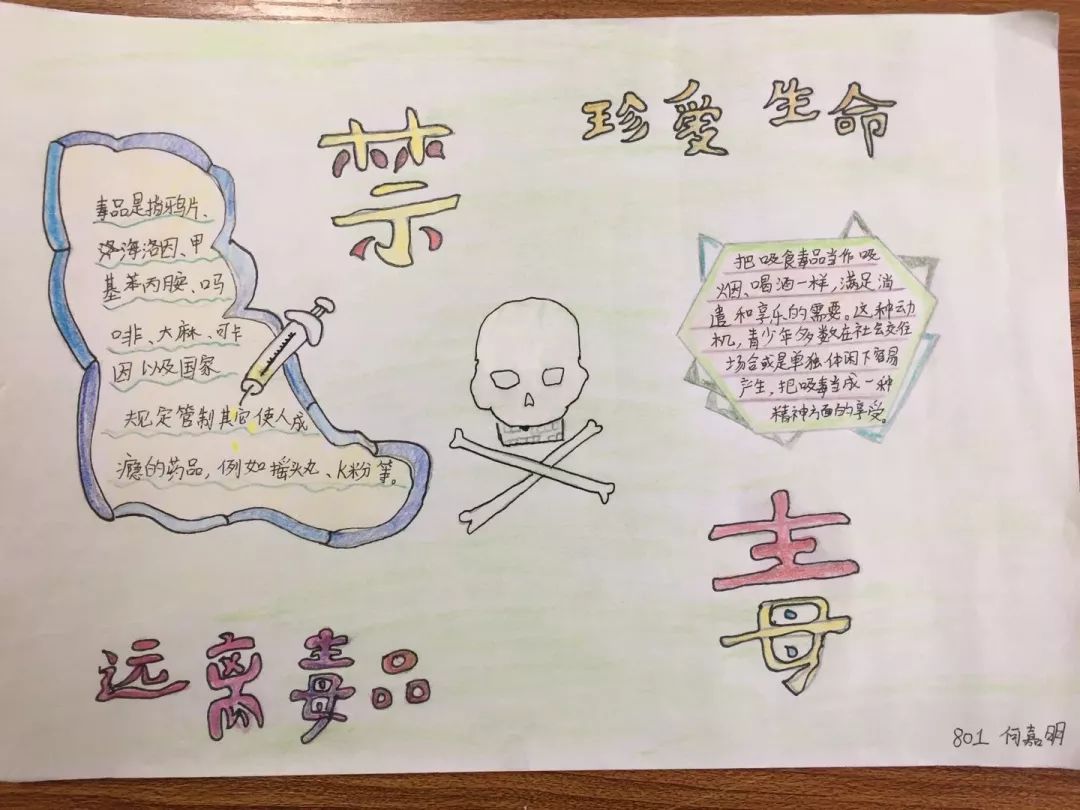 珍愛生命
禁
毒品是指鸦片、
海洛因、甲
基苯丙胺、吗
啡、大麻、可卡
因以及国家
规定管制其它使人成
瘾的药品,例如摇头丸、K粉等。
把吸食毒品当作吸
烟、喝酒一样,满足消
遣和享乐的需要。这种动
机,青少年多数在社会交往
场合或是单独休闲下容易
产生,把吸毒当成一种
精神方面的享受。
毒
远离毒品
801 何嘉明